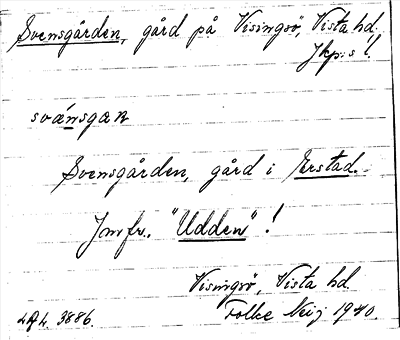 Svensgården, gård på Visingsö, Vista hd.
Jkp:s l.
svánsgan
Svensgården, gård i Erstad.
Jmfr. "Udden"!
Visingsö, Vista hd.
LAL 3886. Folke Neij 1940.